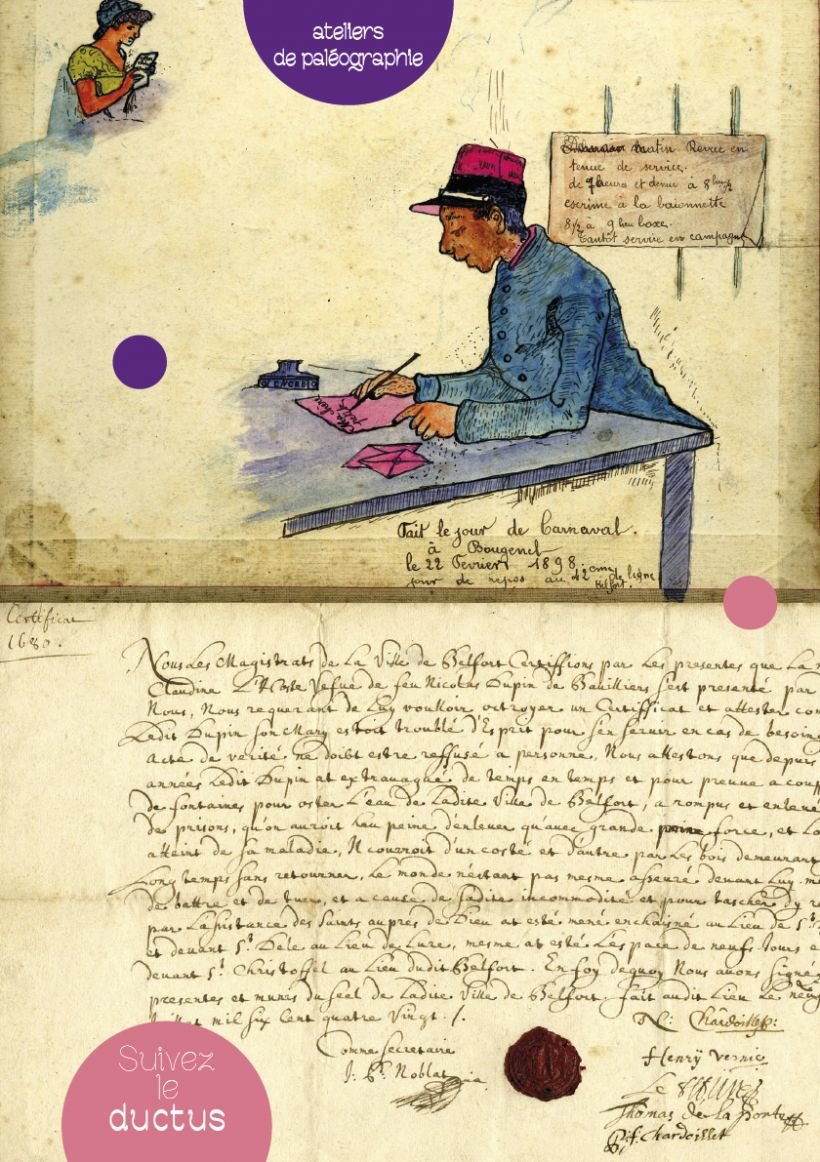 ateliers
de paléographie
matin Revue en
tenue de service.
de 7 heures et demie à 8 heures
escrime à la baionnette
8 1/2 à 9 heu boxe.
Tantôt service en campagne
Ma chère
Fait le jour de Carnaval.
à Bougenel
le 22 Fevrier 1898
jour de repos au 42 eme de ligne
Belfort.
Certificat
1680.
Nous Les Magistrats de La Ville de Belfort Certiffions par Les presentes que La
Claudine L'Hoste Vefue de feu Nicolas Dupin de Bauilliers s'est presenté par
Nous, Nous requerant de Luy voulloir octroyer un Certifficat et attester
Ledit Dupin son Mary estoit troublé d'Esprit pour s'en seruir en cas de besoing
acte de verité ne doibt estre reffusé a personne, Nous attestons que depuis
années Ledit Dupin at extrauagué de temps en temps et pour preuue a
de fontaines pour oster L'eau de Ladite Ville de Belfort, a rompus et enleué
de prisons, qu'on auroit heu peine d'enleuer qu'auec grande force, et
atteint de sa maladie, Il courroit d'un costé et d'autre par Les bois demeurant
Long temps sans retourner, Le monde n'estant pas mesme asseuré deuant Luy
de battre et de tuer, et a cause de sadite incommodité et pour tascher d'y
par Lassistance des Saints aupres de Dieu at esté mené enchaisné au Lieu de St
et deuant St Dele au Lieu de Lure, mesme at esté Les pace de neufs Jours
deuant St Christoffel au Lieu dudit Belfort. En foy dequoy Nous auons signé
presentes et munis du seel de Ladite Ville de Belfort. fait audit Lieu Le
mil six Cent quatre Vingt ./.
Comme Secretaire
Noblat
Chardoillet
Henry Vernie
Le
Thomas de la Porte
Chardoillet
Suivez
le
ductus